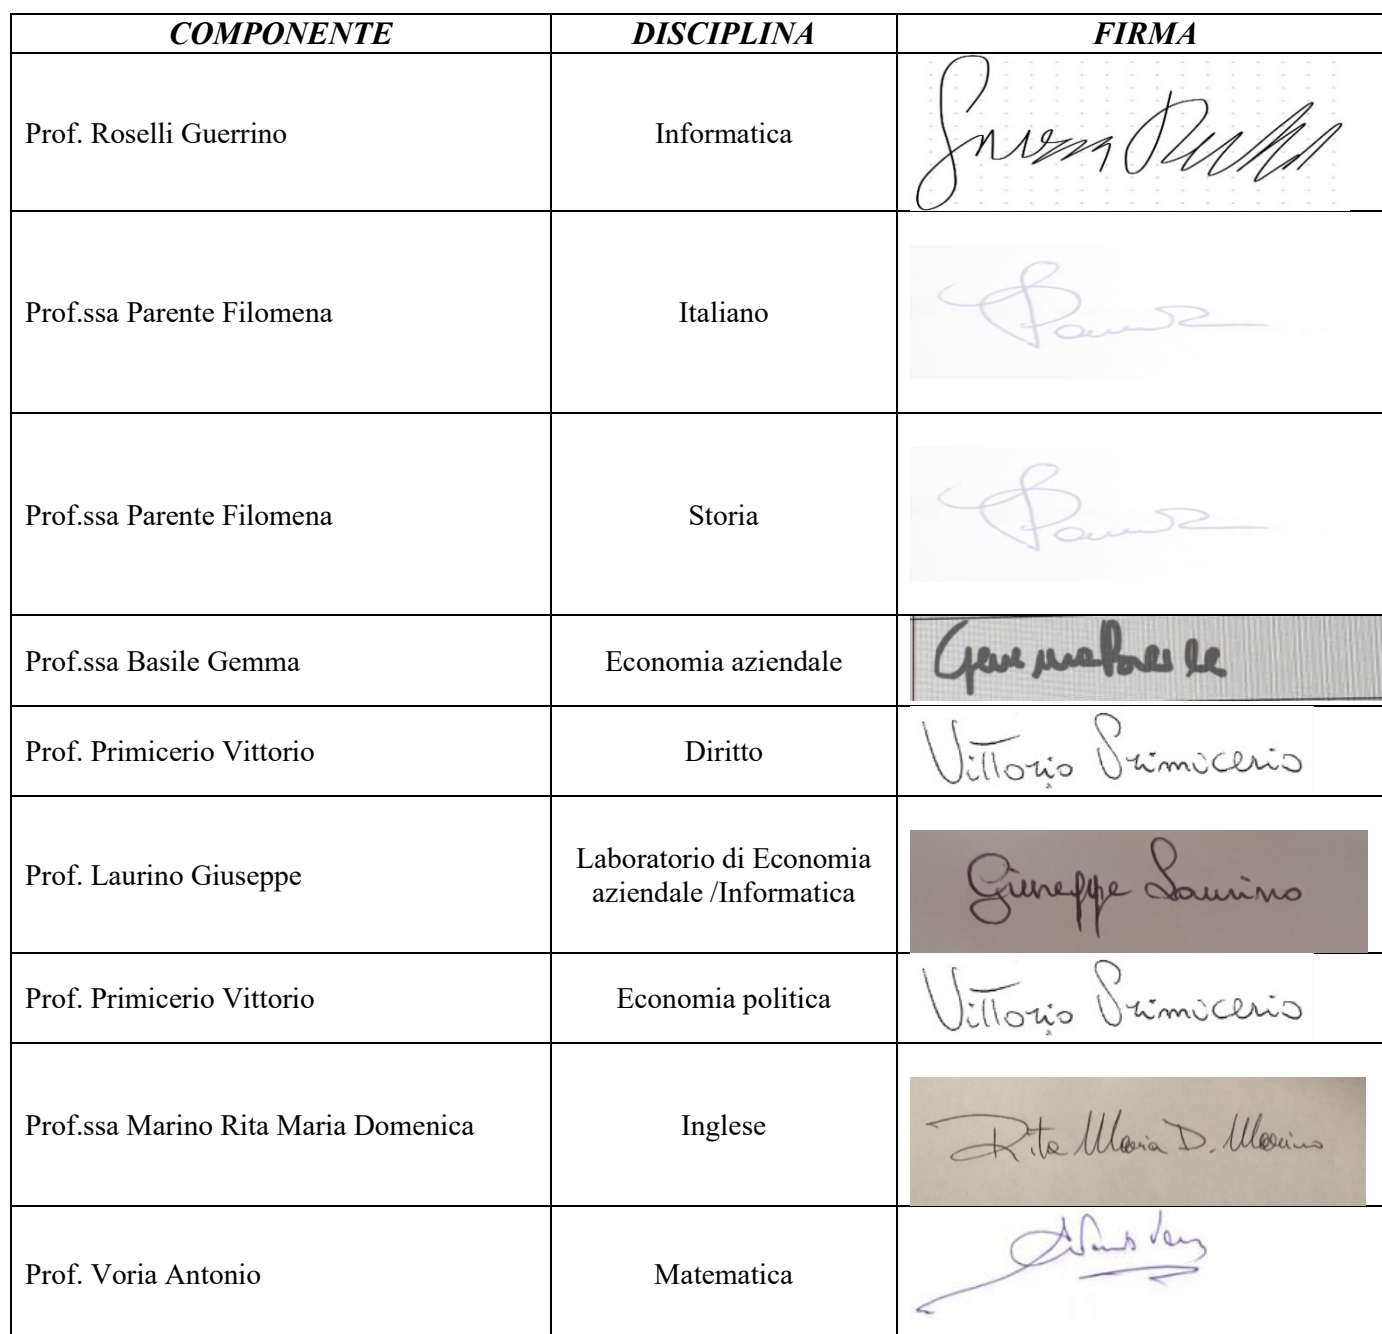 COMPONENTE DISCIPLINA FIRMA
Prof. Roselli Guerrino Informatica
Prof.ssa Parente Filomena Italiano
Prof.ssa Parente Filomena Storia
Prof.ssa Basile Gemma Economia aziendale Gemma Basile
Prof. Primicerio Vittorio Diritto Vittorio Primicerio
Prof. Laurino Giuseppe Laboratorio di Economia
aziendale /Informatica Giuseppe Laurino
Prof. Primicerio Vittorio Economia politica Vittorio Primicerio
Prof.ssa Marino Rita Maria Domenica Inglese Rita Maria D. Marino
Prof. Voria Antonio Matematica